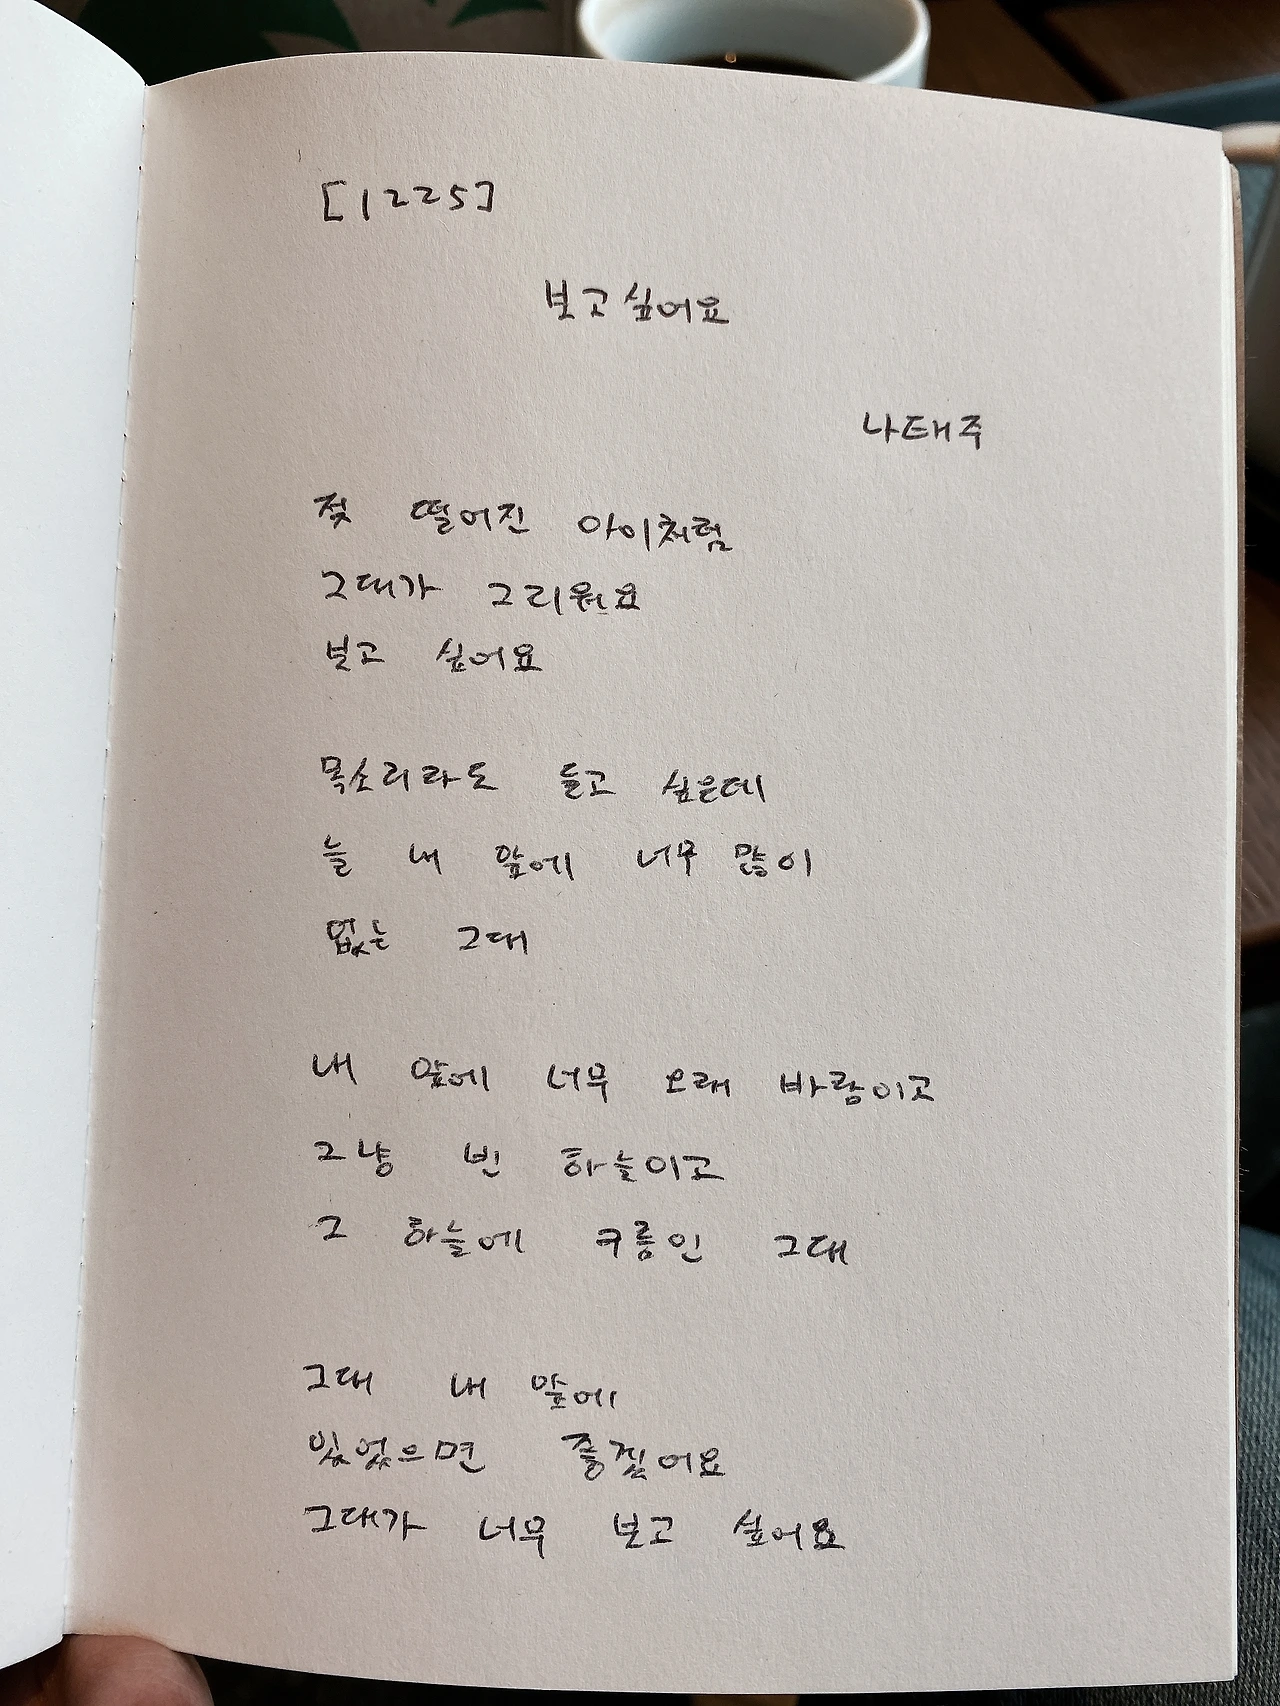 [1225]
보고싶어요
나태주
젖 떨어진 아이처럼
그대가 그리워요
보고 싶어요
목소리라도 듣고 싶은데
늘 내 앞에 너무 많이
없는 그대
내 앞에 너무 오래 바람이고
그냥 빈 하늘이고
그 하늘에 구름인 그대
그대 내 앞에
있었으면 좋겠어요
그대가 너무 보고 싶어요